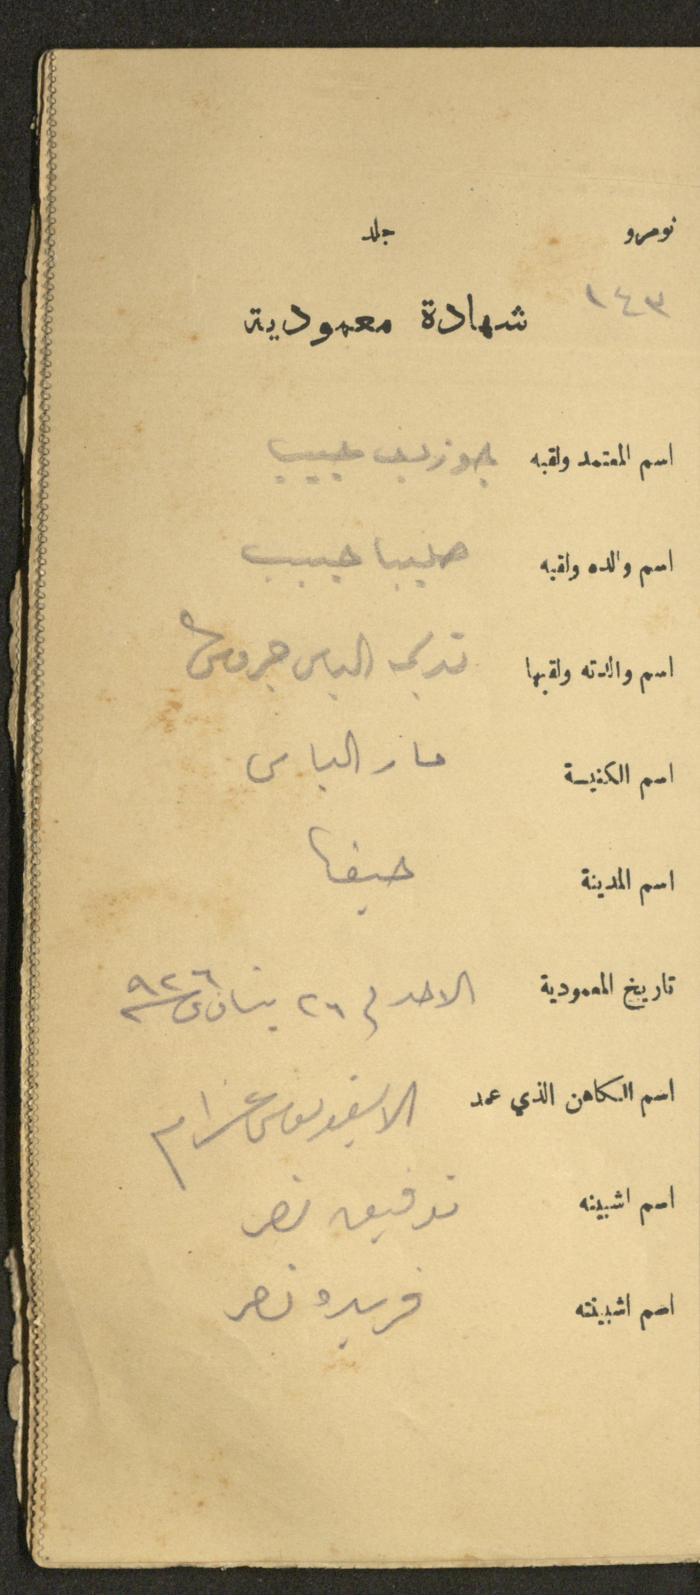 نومرو جلد
١٤٣
شهادة معمودية
اسم المعتمد ولقبه جوزيف حبيب
اسم والده ولقبه حبيب
اسم والدته ولقبها الياس
اسم الكنيسة مار الياس
اسم المدينة حيفا
تاريخ المعمودية الاحد في ٢٦ نيسان سنة ٩٢٦
اسم الكاهن الذي عمد
اسم اشبينه توفيق نصر
اسم اشبينته فريده نصر